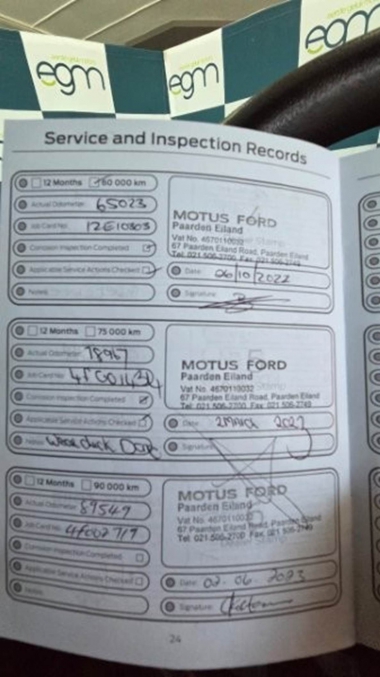 egm
egm
egm
Service and Inspection Records
12 Months 60 000 km
Actual Odometer 65023
Job Card No
Corrosion Inspection Completed
Applicable Service Actions Checked
Notes
MOTUS FORD
Paarden Eiland
Vat No. 4670110032
67 Paarden Eiland Road, Paarden Eiland
Tel: 021 506-2700 Fax: 021 506-2749
Date 06/10/2022
Signature
12 Months 75 000 km
Actual Odometer 78967
Job Card No
Corrosion Inspection Completed
Applicable Service Actions Checked
Notes
MOTUS FORD
Paarden Eiland
Vat No. 4670110032
67 Paarden Eiland Road, Paarden Eiland
Tel: 021 506-2700 Fax: 021 506-2749
Date 2 March
Signature
12 Months 90 000 km
Actual Odometer 89549
Job Card No
Corrosion Inspection Completed
Applicable Service Actions Checked
Notes
MOTUS FORD
Paarden Eiland
Vat No. 4670110032
67 Paarden Eiland Road, Paarden Eiland
Tel: 021 506-2700 Fax: 021 506-2749
Date 02-06-2023
Signature
24